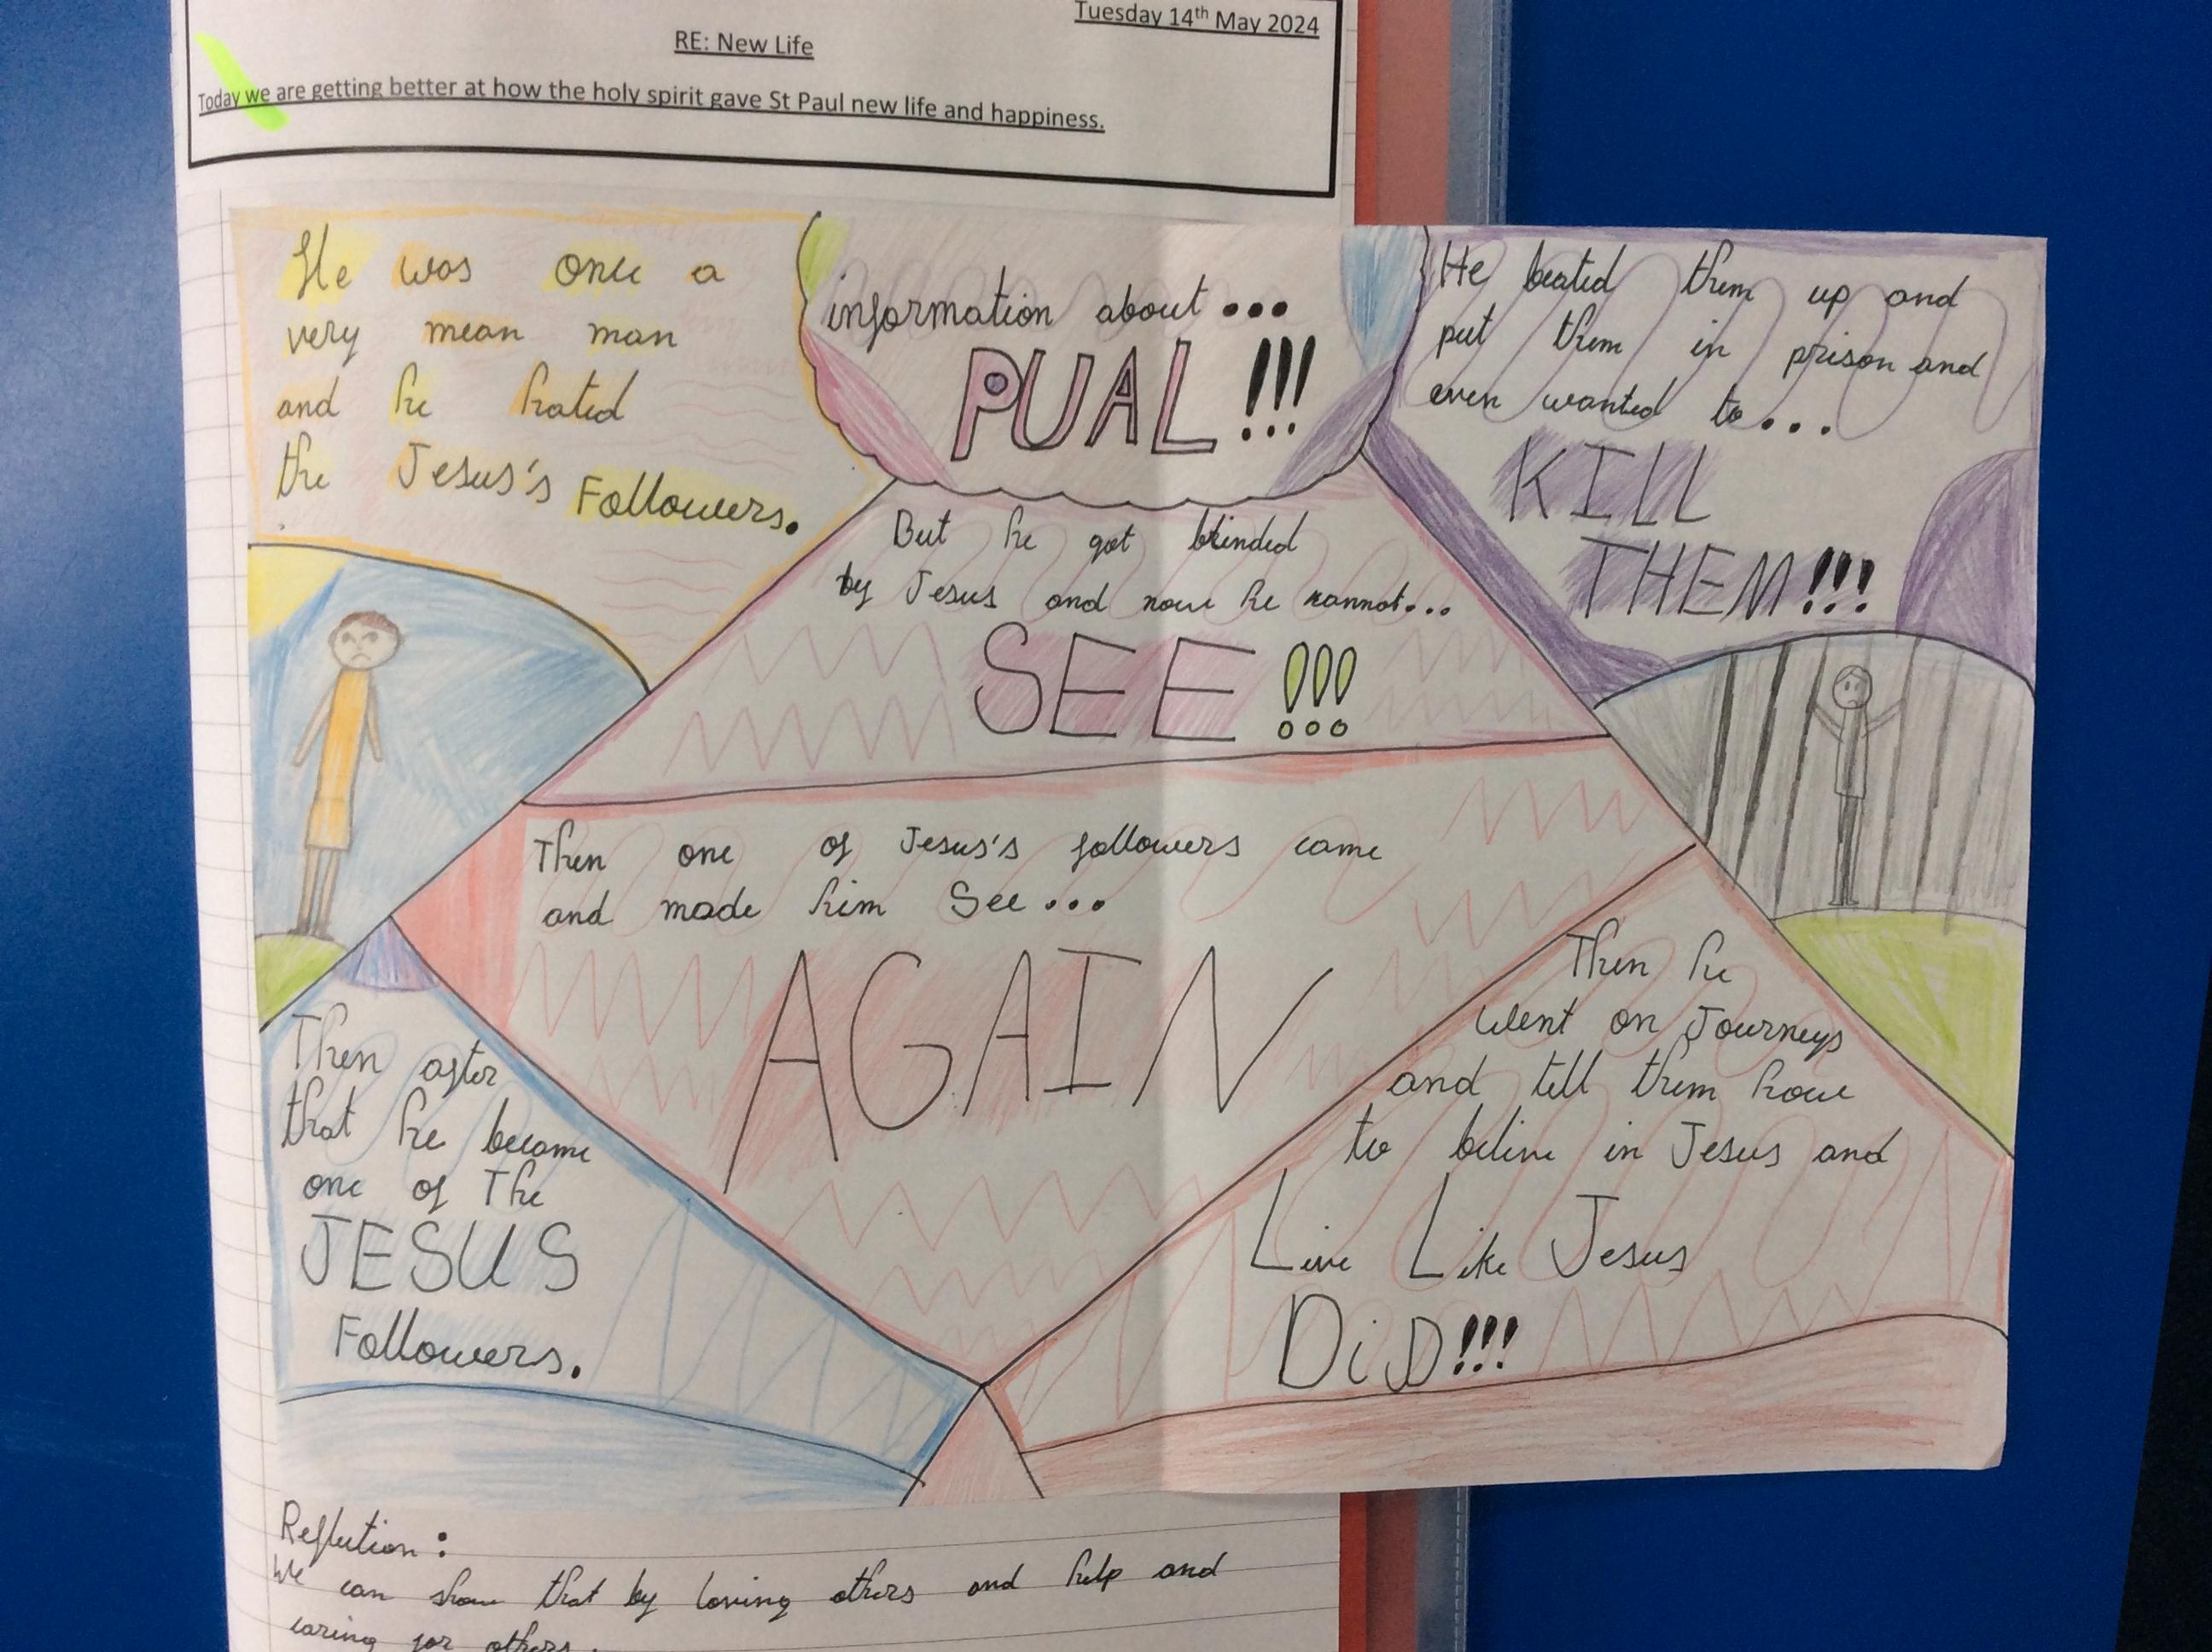 Tuesday 14th May 2024
RE: New Life
Today we are getting better at how the holy spirit gave St Paul new life and happiness.
He was once a
very mean man
and he hated
the Jesus's Followers.
information about...
PUAL!!!
He beated them up and
put them in prison and
even wanted to...
KILL
THEM!!!
But he got blinded
by Jesus and now he cannot...
SEE!!!
Then one of Jesus's followers came
and made him See...
AGAIN
Then after
that he became
one of The
JESUS
Followers.
Then he
went on Journeys
and tell them how
to belive in Jesus and
Live Like Jesus
DiD!!!
Reflection:
We can show that by loving others and help and
caring for others.